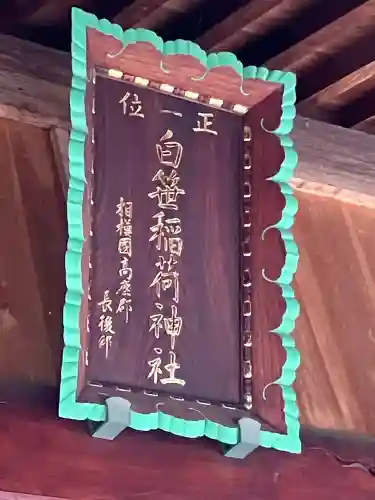 正一位
白笹稲荷神社
相模國高座郡
長後